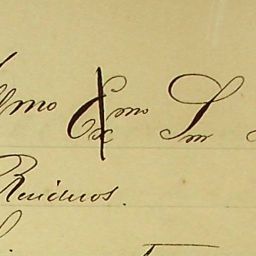 Illmo Exmo Snr
Residuos.